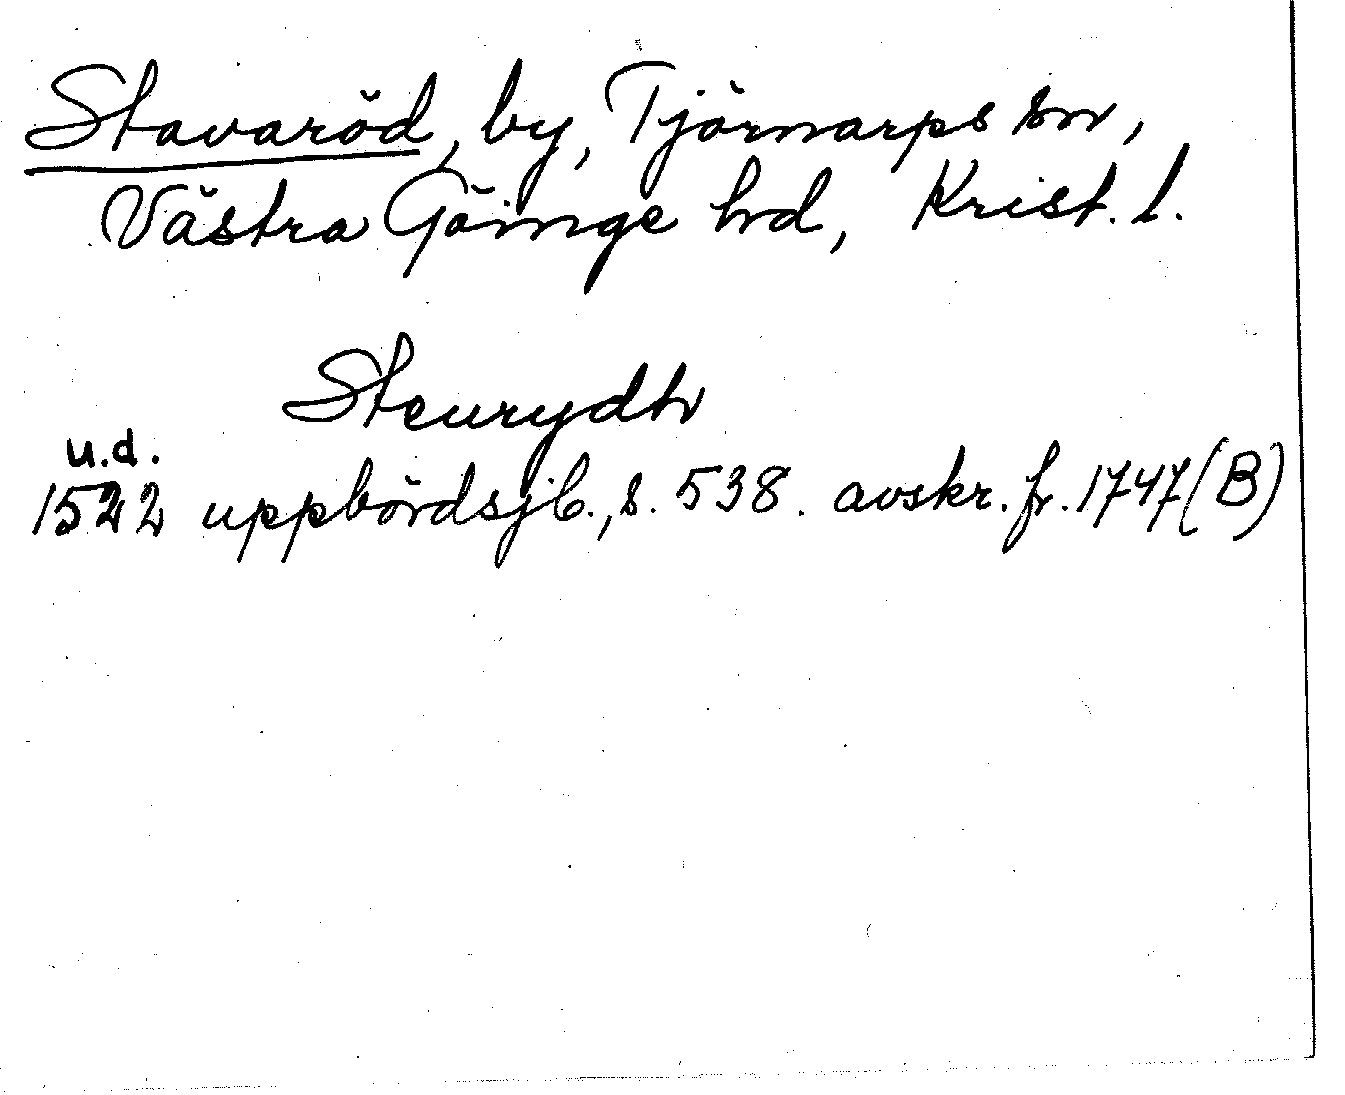 Stavaröd, by, Tjörnarps sn,
Västra Göinge hd, Krist. l.
Steurydh
u.d.
1522 uppbördsjb., s. 538. avskr. fr. 1747 (B)